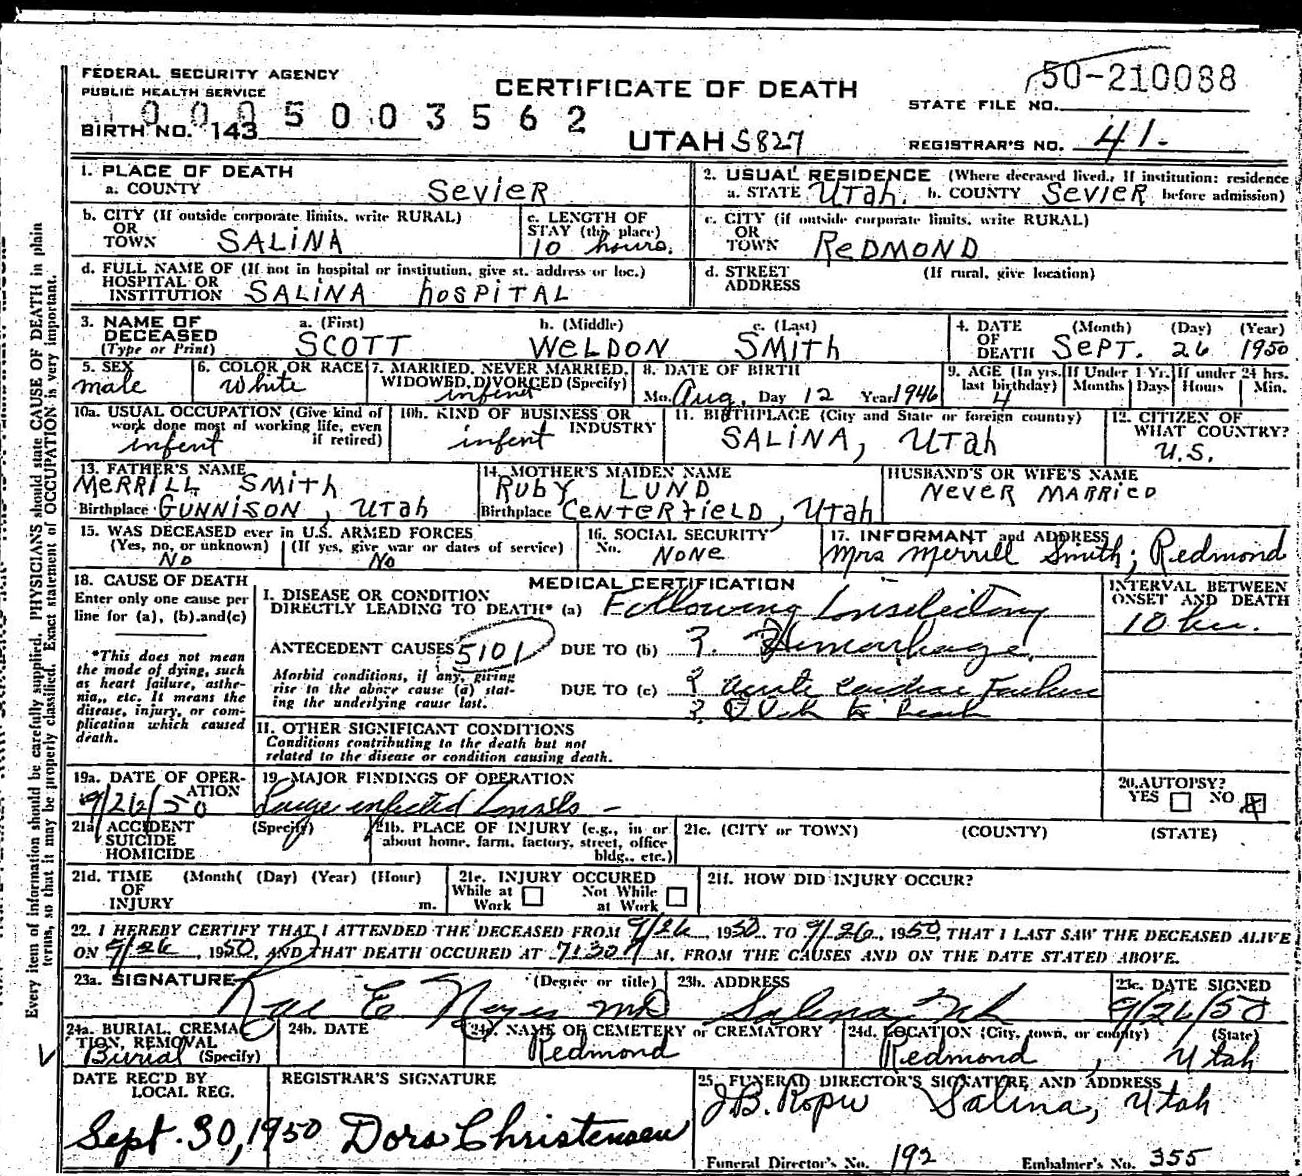 FEDERAL SECURITY AGENCY
PUBLIC HEALTH SERVICE
CERTIFICATE OF DEATH
50-210088
STATE FILE NO.
0005003562
BIRTH NO. 143
UTAH 5827
REGISTRAR'S NO. 41.
1. PLACE OF DEATH
a. COUNTY SEVIER
2. USUAL RESIDENCE (Where deceased lived., If institution: residence
a. STATE Utah. b. COUNTY SEVIER before admission)
b. CITY (If outside corporate limits, write RURAL)
OR
TOWN SALINA
c. LENGTH OF
STAY (this place)
10 hours.
c. CITY (if outside corporate limits, write RURAL)
OR
TOWN REDMOND
d. FULL NAME OF (If not in hospital or institution, give st. address or loc.)
HOSPITAL OR
INSTITUTION SALINA hOSPITAL
d. STREET (If rural, give location)
ADDRESS
3. NAME OF
DECEASED
(Type or Print)
a. (First) SCOTT
b. (Middle) WELDON
c. (Last) SMITH
4. DATE (Month) (Day) (Year)
OF
DEATH SEPT. 26 1950
5. SEX
male
6. COLOR OR RACE
White
7. MARRIED, NEVER MARRIED,
WIDOWED, DIVORCED (Specify)
infent
8. DATE OF BIRTH
Mo. Aug. Day 12 Year 1946
9. AGE (In yrs.
last birthday)
4
If Under 1 Yr.
Months Days
If under 24 hrs.
Hours Min.
10a. USUAL OCCUPATION (Give kind of
work done most of working life, even
if retired)
infent
10b. KIND OF BUSINESS OR
INDUSTRY
infent
11. BIRTHPLACE (City and State or foreign country)
SALINA, Utah
12. CITIZEN OF
WHAT COUNTRY?
U.S.
13. FATHER'S NAME
MERRILL SMITH
Birthplace GUNNISON, Utah
14. MOTHER'S MAIDEN NAME
RUBY LUND
Birthplace CENTERFIELD, Utah
HUSBAND'S OR WIFE'S NAME
NEVER MARRIED
15. WAS DECEASED ever in U.S. ARMED FORCES
(Yes, no, or unknown) (If yes, give war or dates of service)
No No
16. SOCIAL SECURITY
No. NONE
17. INFORMANT and ADDRESS
Mrs Merrill Smith; Redmond
18. CAUSE OF DEATH
Enter only one cause per
line for (a), (b), and (c)
*This does not mean
the mode of dying, such
as heart failure, asthe-
nia,, etc. It means the
disease, injury, or com-
plication which caused
death.
MEDICAL CERTIFICATION
I. DISEASE OR CONDITION
DIRECTLY LEADING TO DEATH* (a) Following
ANTECEDENT CAUSES 5101 DUE TO (b) ?. Hemorrhage.
Morbid conditions, if any, giving
rise to the above cause (a) stat-
ing the underlying cause last.
DUE TO (c) ? acute cardiac Failure
?
INTERVAL BETWEEN
ONSET AND DEATH
10 hrs.
II. OTHER SIGNIFICANT CONDITIONS
Conditions contributing to the death but not
related to the disease or condition causing death.
19a. DATE OF OPER-
ATION
9/26/50
19. MAJOR FINDINGS OF OPERATION
Large infected tonsils -
20. AUTOPSY?
YES NO X
21a ACCIDENT (Specify)
SUICIDE
HOMICIDE
21b. PLACE OF INJURY (e.g., in or
about home, farm, factory, street, office
bldg., etc.)
21c. (CITY or TOWN) (COUNTY) (STATE)
21d. TIME (Month( (Day) (Year) (Hour)
OF
INJURY m.
21e. INJURY OCCURED
While at Not While
Work at Work
21f. HOW DID INJURY OCCUR?
22. I HEREBY CERTIFY THAT I ATTENDED THE DECEASED FROM 9/26, 1950, TO 9/26, 1950, THAT I LAST SAW THE DECEASED ALIVE
ON 9/26, 1950, AND THAT DEATH OCCURED AT 7:30 P M, FROM THE CAUSES AND ON THE DATE STATED ABOVE.
23a. SIGNATURE (Degree or title)
Rae E Noyes MD
23b. ADDRESS
Salina Utah
23c. DATE SIGNED
9/26/50
24a. BURIAL, CREMA
TION, REMOVAL
Burial (Specify)
24b. DATE
24c. NAME OF CEMETERY or CREMATORY
Redmond
24d. LOCATION (City, town, or county) (State)
Redmond, Utah
DATE REC'D BY
LOCAL REG.
Sept. 30, 1950
REGISTRAR'S SIGNATURE
Dora Christensen
25. FUNERAL DIRECTOR'S SIGNATURE AND ADDRESS
Salina, Utah
Funeral Director's No. 192 Embalmer's No. 355
Every item of information should be carefully supplied. PHYSICIANS should state CAUSE OF DEATH in plain
terms, so that it may be properly classified. Exact statement of OCCUPATION is very important.